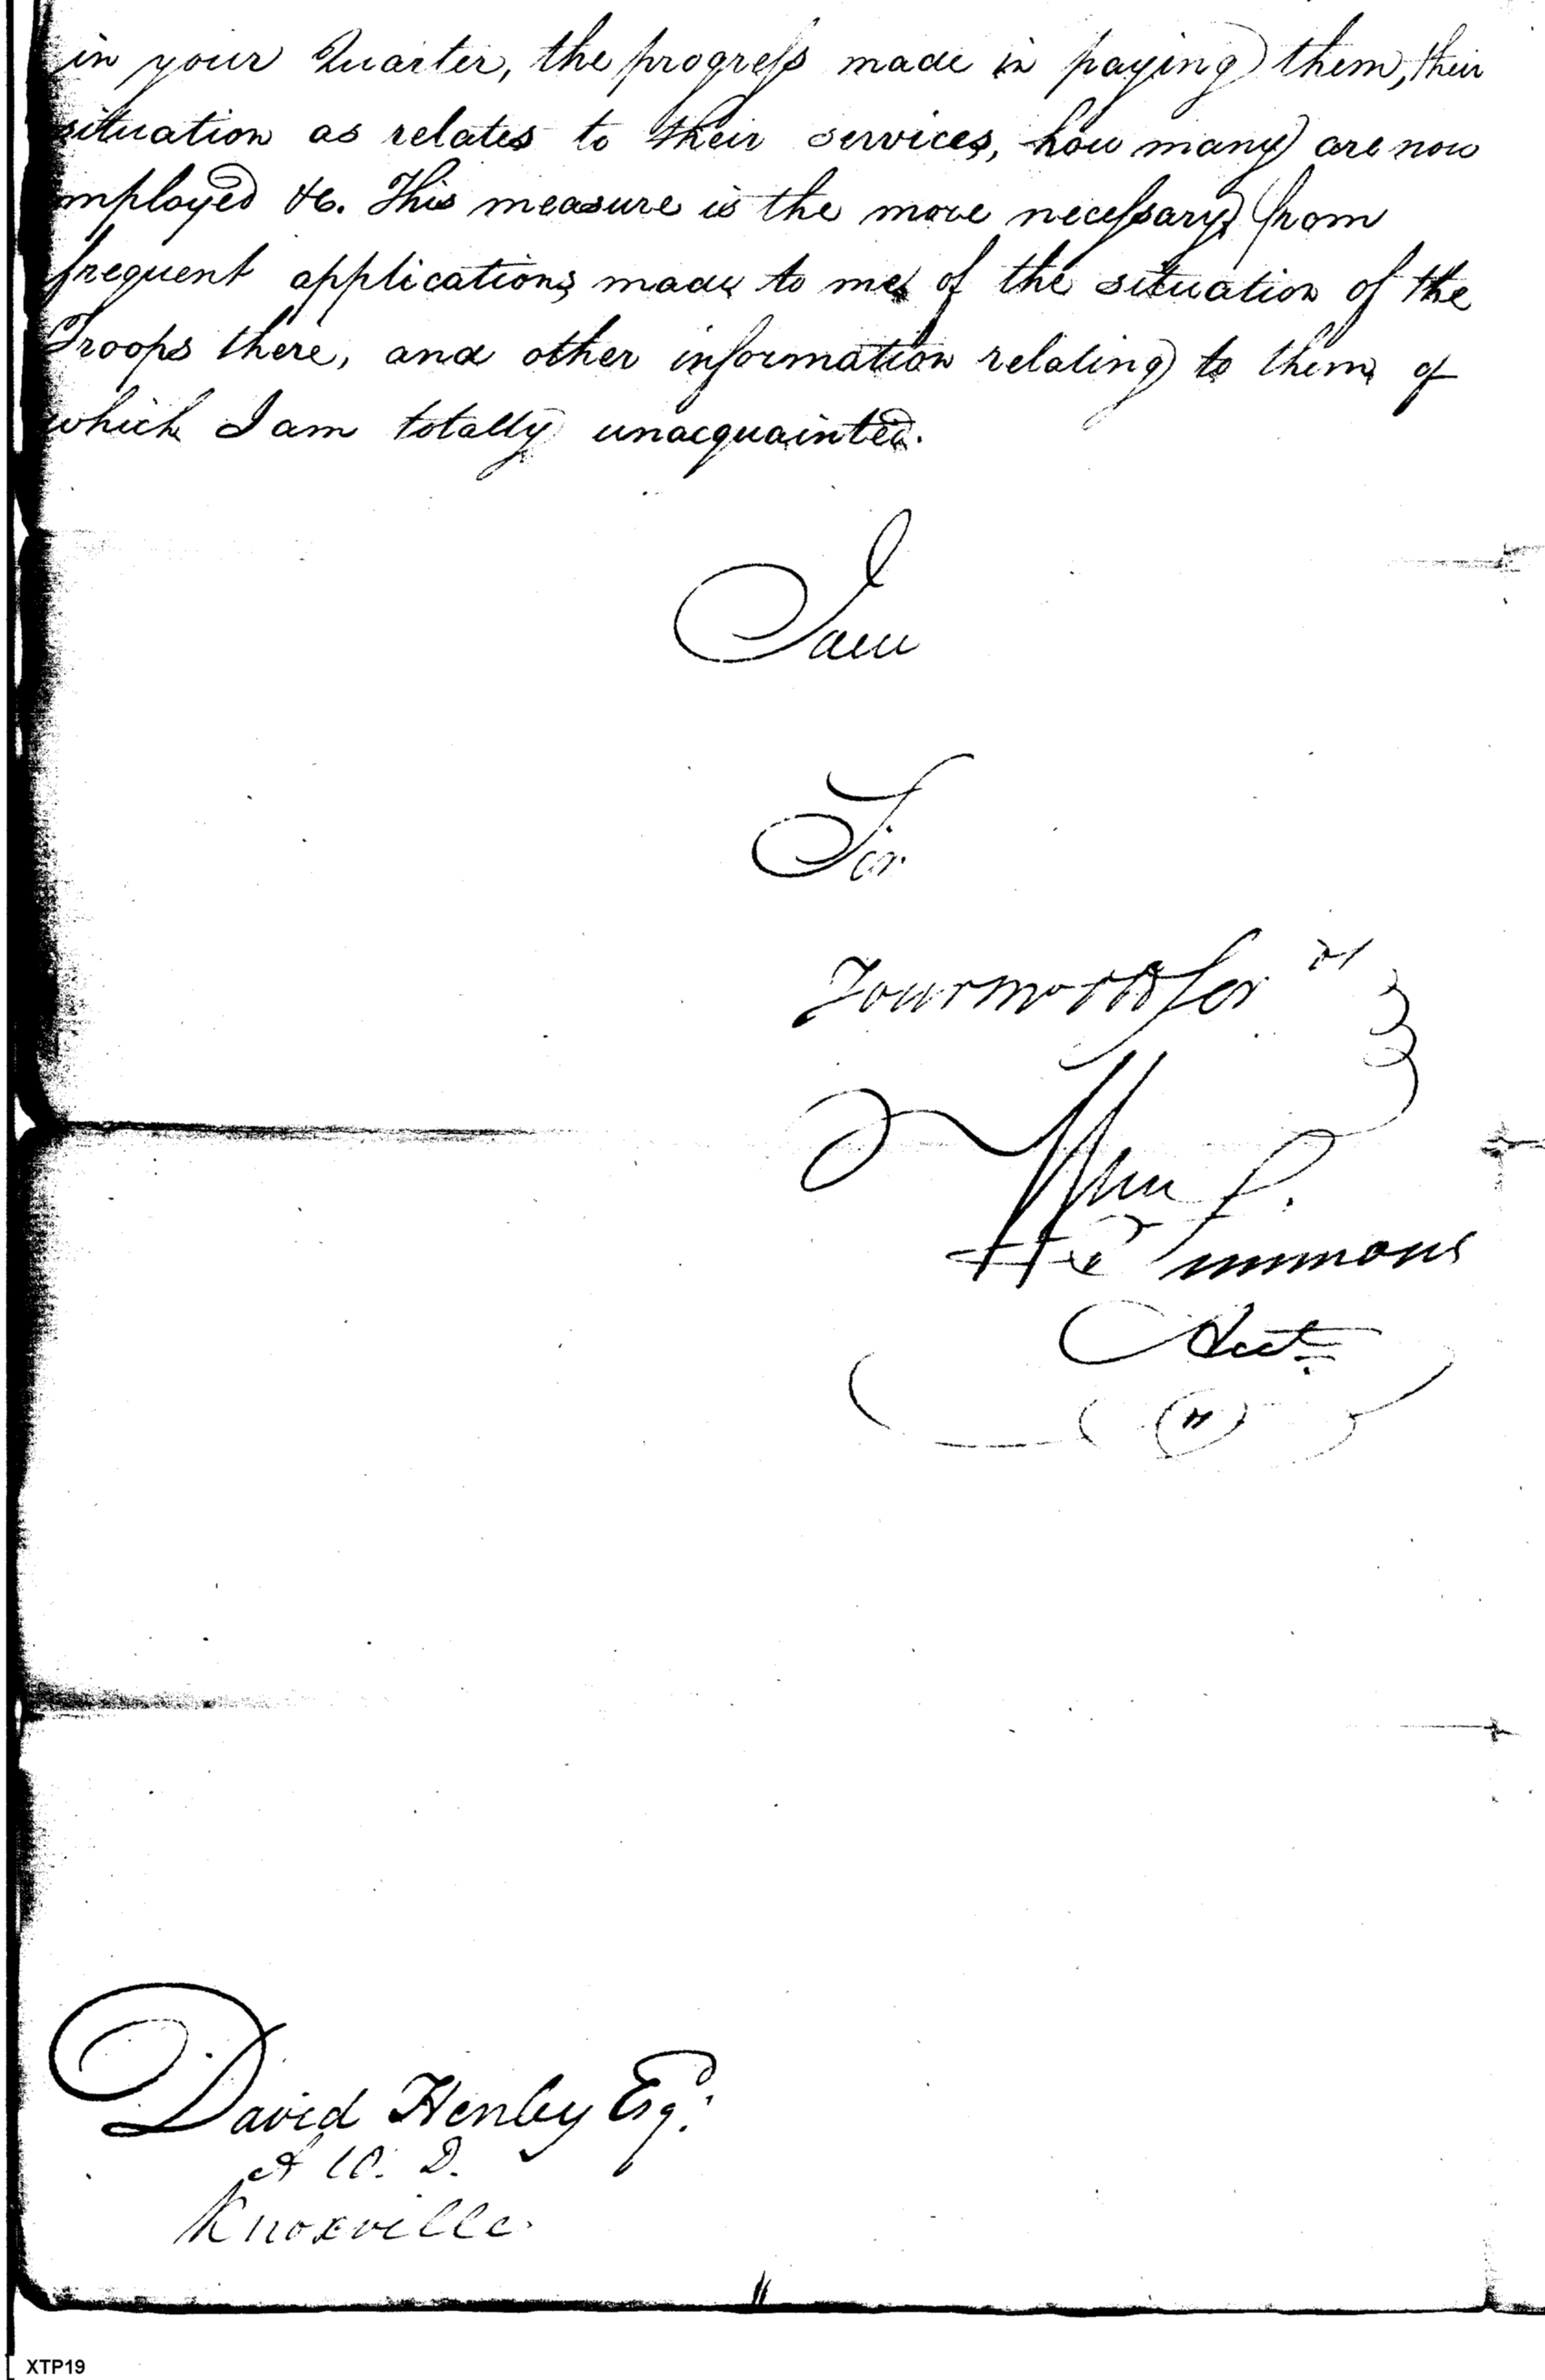 in your Quarter, the progress made in paying them, their
situation as relates to their services, how many are now
employed &c. This measure is the more necessary from
frequent applications made to me of the situation of the
Troops there, and other information relating to them of
which I am totally unacquainted.
I am
Sir
Your most obt
Wm
Simmons
Acct
David Henley Esqr.
A W. D.
Knoxville.
XTP19